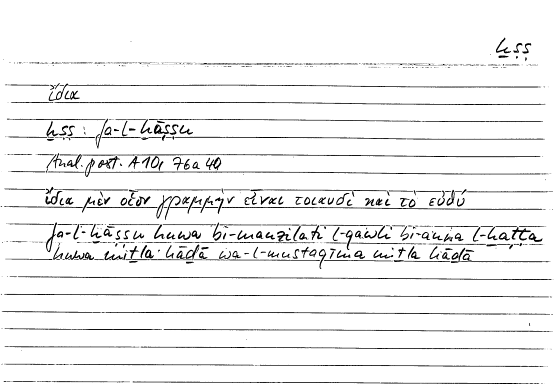 ḫṣṣ
ἴδια
ḫṣṣ : fa-l-ḫāṣṣu
Anal. post. A 10, 76a 40
ἴδια μὲν οἷον γραμμὴν εἶναι τοιανδὶ καὶ τὸ εὐθύ
fa-l-ḫāṣṣu huwa bi-manzilati l-qawli bi-anna l-ḫaṭṭa
huwa miṯla hāḏā wa-l-mustaqīma miṯla hāḏā